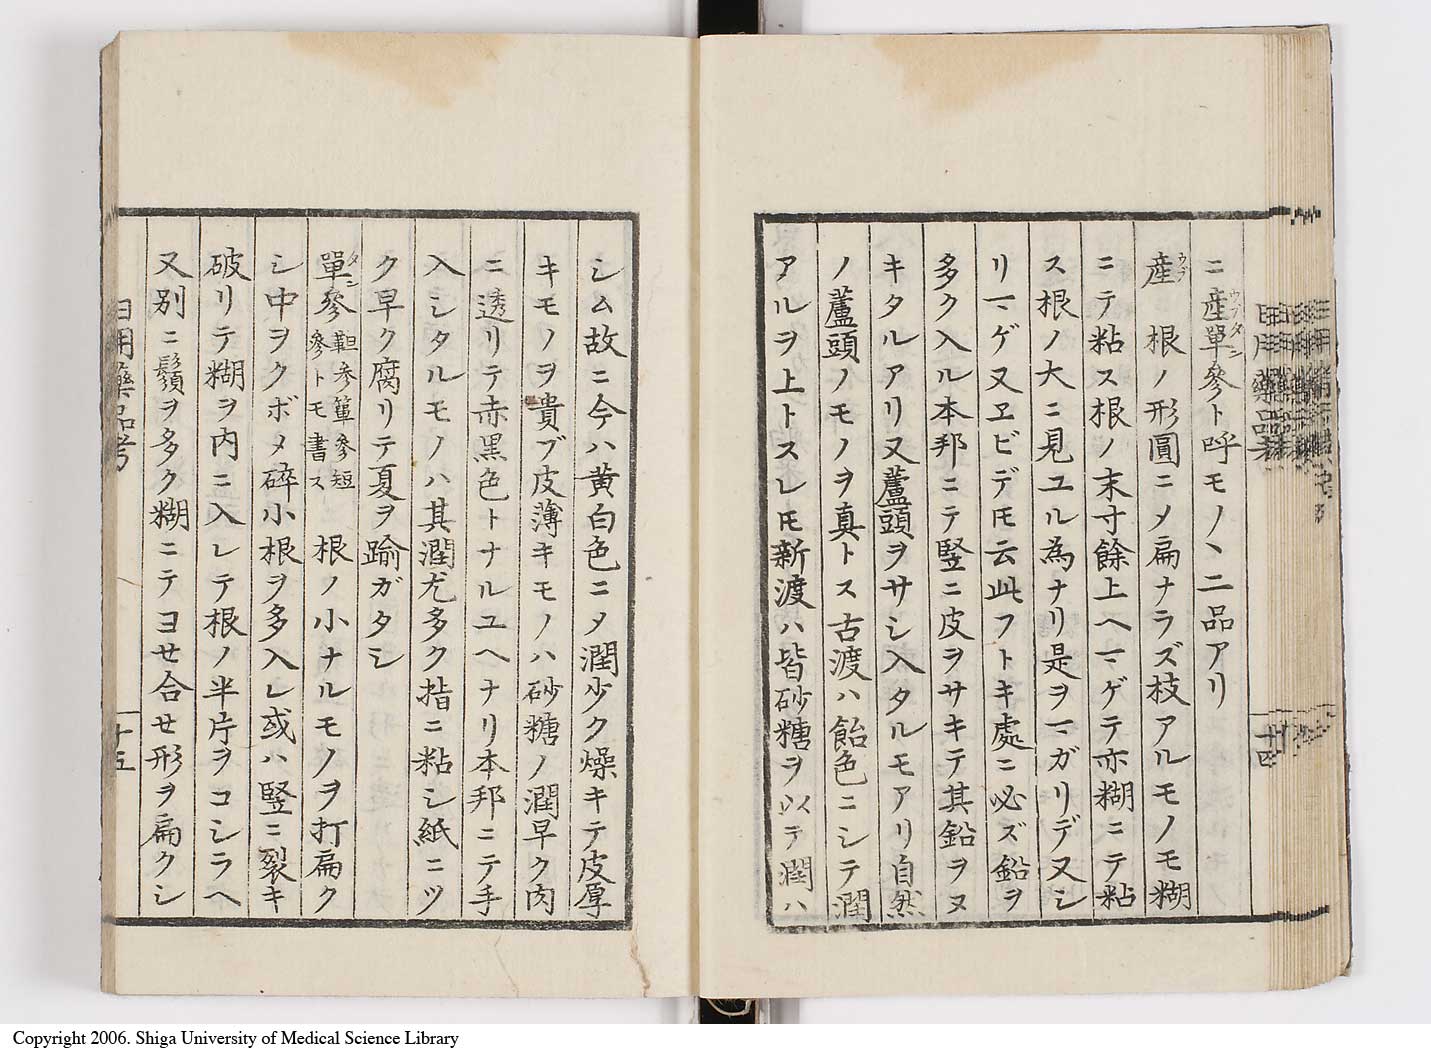 ニ産單參ト呼モノヽ二品アリ
ウブタン
産 根ノ形圓ニ〆扁ナラズ枝アルモノモ糊
ウブ
ニテ粘ス根ノ末寸餘上ヘマゲテ亦糊ニテ粘
ス根ノ大ニ見ユル為ナリ是ヲマガリデ又シ
リマゲ又ヱビデ𪜈云此フトキ處ニ必ズ鉛ヲ
多ク入ル本邦ニテ竪ニ皮ヲサキテ其鉛ヲヌ
キタルアリ又蘆頭ヲサシ入タルモアリ自然
ノ蘆頭ノモノヲ真トス古渡ハ飴色ニシテ潤
アルヲ上トスレ𪜈新渡ハ皆砂糖ヲ以テ潤ハ
日用藥品考
十四
シム故ニ今ハ黄白色ニ〆潤少ク燥キテ皮厚
キモノヲ貴ブ皮薄キモノハ砂糖ノ潤早ク肉
ニ透リテ赤黒色トナルユヘナリ本邦ニテ手
入シタルモノハ其潤尤多ク指ニ粘シ紙ニツ
ク早ク腐リテ夏ヲ踰ガタシ
單參 根ノ小ナルモノヲ打扁ク
タン
參簞參短
參トモ書ス
シ中ヲクボメ碎小根ヲ多入レ或ハ竪ニ裂キ
破リテ糊ヲ内ニ入レテ根ノ半片ヲコシラヘ
又別ニ鬚ヲ多ク糊ニテヨセ合セ形ヲ扁クシ
日用藥品考
十五
Copyright 2006. Shiga University of Medical Science Library